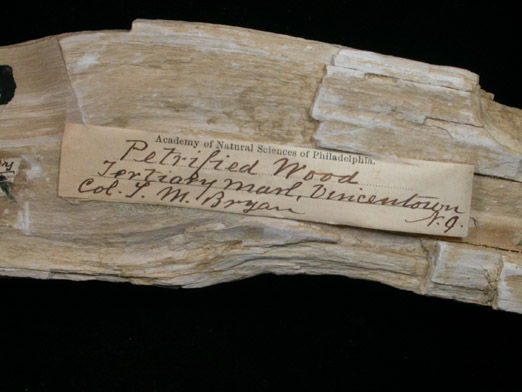 Academy of Natural Sciences of Philadelphia.
Petrified Wood
Tertiary Marl, Vincentown
N.J.
Col. T. M. Bryan